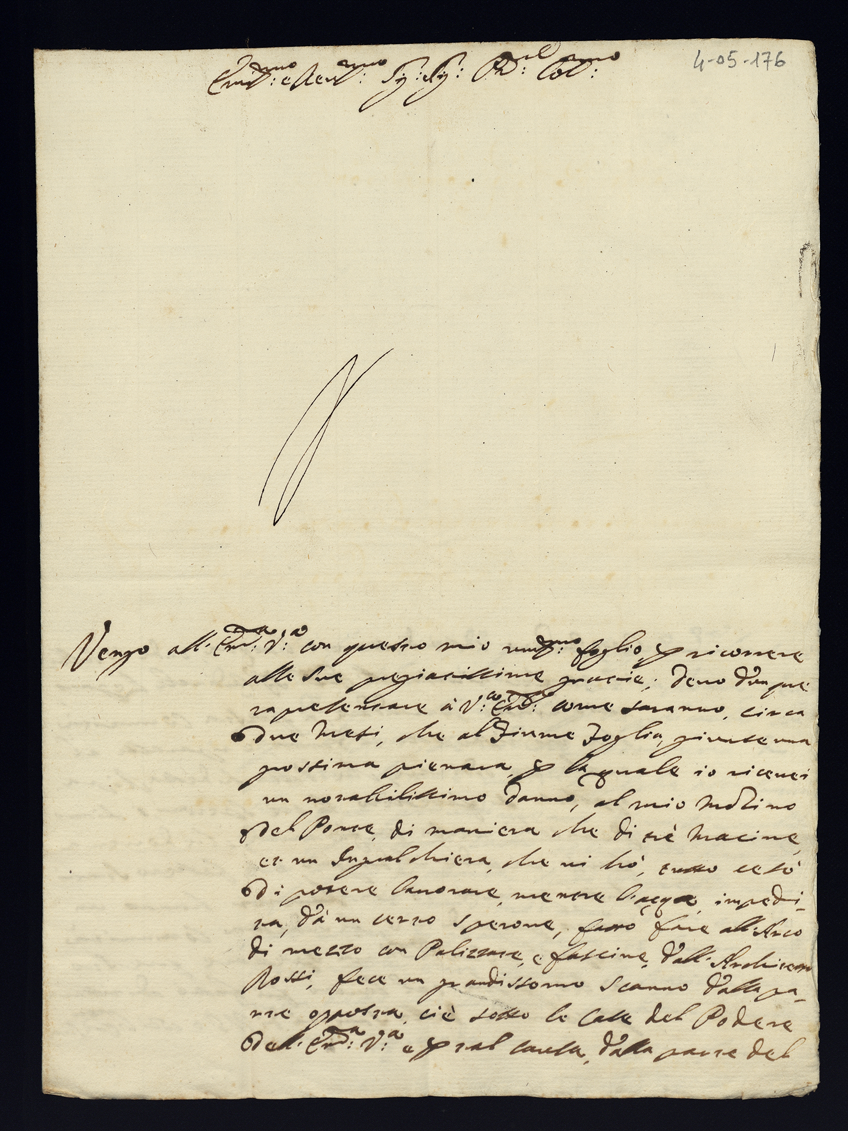 4-05-176
Em:mo e Rev:mo Sig: Sig: Pad:ne Col:mo
Vengo all' Em:a V:a con questo mio umil:mo foglio p ricorrere
alle sue pregiatissime grazie; devo dunque
rapresentare à V:a Em:a come saranno, circa
due Mesi, che al Fiume Foglia, giunse una
grossima pienara p la quale io ricevei
un notabilissimo danno, al mio Molino
del Ponte, di maniera che di trè Macine,
et un Gualchiera, che vi hò, tutto cesò
di potere lavorare, mentre l'acqua, impedi-
ta, dà un certo Sperone, fatto fare all'Arco
di mezzo con Palizzate, e fascine, dall' Architetto
Rossi, fece un grandissomo Scanno dalla pa-
rte opposta, ciè sotto le Case del Podere
dell' Em:a V:a e p tal causa, dalla parte del